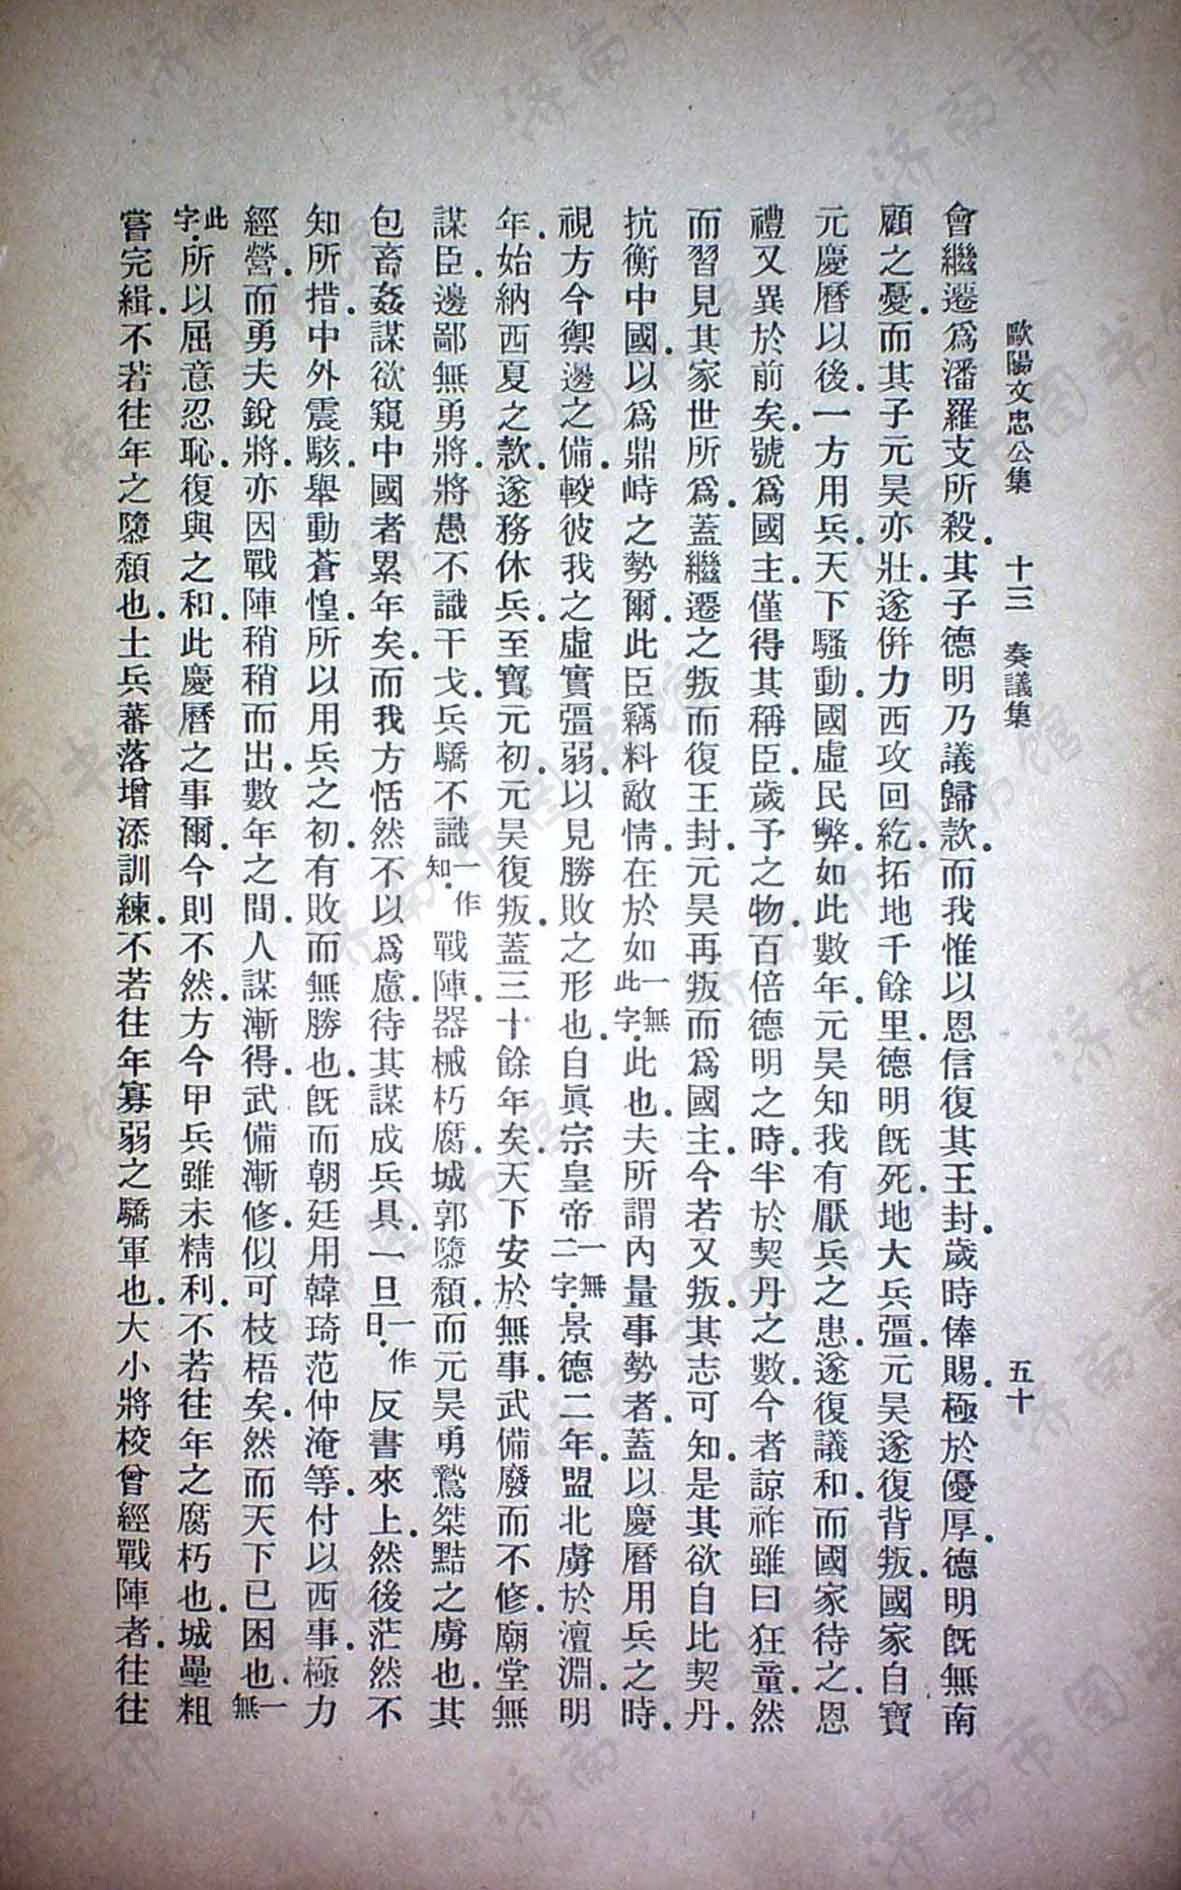 歐陽文忠公集　十三　奏議集　五十
會繼遷爲潘羅支所殺．其子德明乃議歸款．而我惟以恩信復其王封．歲時俸賜．極於優厚．德明旣無南
顧之憂．而其子元昊亦壯．遂併力西攻回紇．拓地千餘里．德明旣死．地大兵彊．元昊遂復背叛．國家自寶
元慶曆以後．一方用兵．天下騷動．國虛民弊．如此數年．元昊知我有厭兵之患．遂復議和．而國家待之．恩
禮又異於前矣．號爲國主．僅得其稱臣．歲予之物．百倍德明之時．半於契丹之數．今者諒祚雖曰狂童．然
而習見其家世所爲．蓋繼遷之叛而復王封．元昊再叛而爲國主．今若又叛．其志可知．是其欲自比契丹．
抗衡中國．以爲鼎峙之勢爾．此臣竊料敵情．在於如一無此字．此也．夫所謂內量事勢者．蓋以慶曆用兵之時．
視方今禦邊之備．較彼我之虛實彊弱．以見勝敗之形也．自眞宗皇帝一無二字．景德二年．盟北虜於澶淵．明
年．始納西夏之款．遂務休兵．至寶元初．元昊復叛．蓋三十餘年矣．天下安於無事．武備廢而不修．廟堂無
謀臣．邊鄙無勇將．將愚不識干戈．兵驕不識一作知．戰陣．器械朽腐．城郭隳頹．而元昊勇鷙桀黠之虜也．其
包畜姦謀欲窺中國者累年矣．而我方恬然不以爲慮．待其謀成兵具．一旦一作日．反書來上．然後茫然不
知所措．中外震駭．舉動蒼惶．所以用兵之初．有敗而無勝也．旣而朝廷用韓琦范仲淹等．付以西事．極力
經營．而勇夫銳將．亦因戰陣稍稍而出．數年之間．人謀漸得．武備漸修．似可枝梧矣．然而天下已困也．一無
此字．所以屈意忍恥．復與之和．此慶曆之事爾．今則不然．方今甲兵雖未精利．不若往年之腐朽也．城壘粗
嘗完緝．不若往年之隳頹也．土兵蕃落增添訓練．不若往年寡弱之驕軍也．大小將校曾經戰陣者．往往